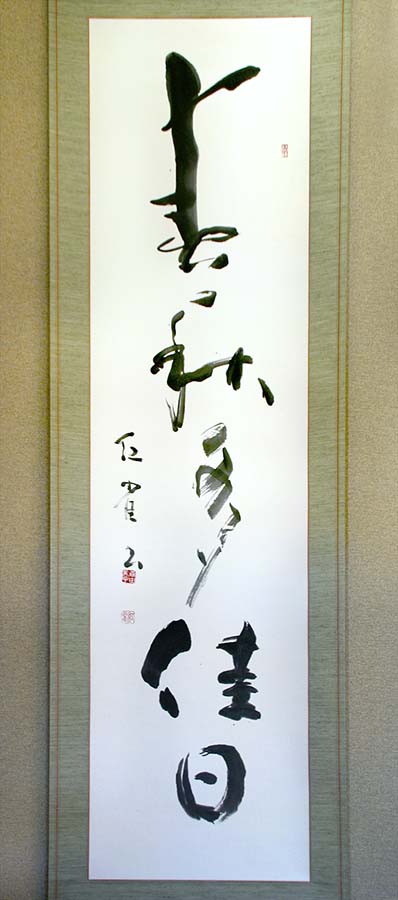 春秋多佳日